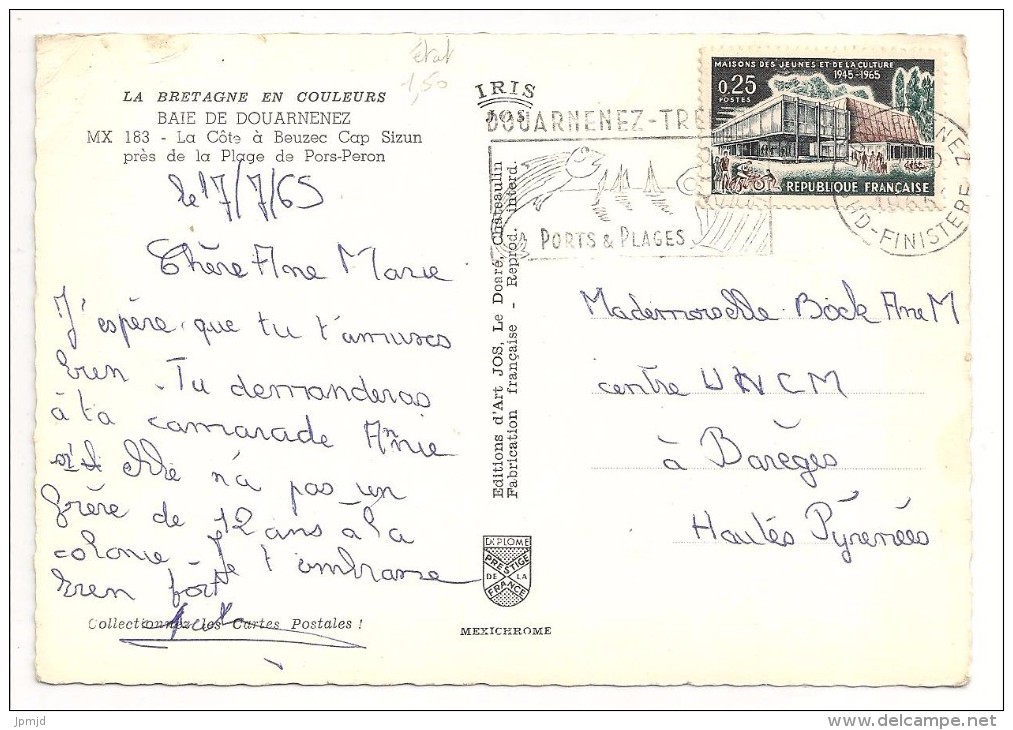 état
1,50
LA BRETAGNE EN COULEURS
BAIE DE DOUARNENEZ
MX 183 - La Côte à Beuzec Cap Sizun
près de la Plage de Pors-Peron
le 17/7/65
Chère Ane Marie
J'espère que tu t'amuses
bien. Tu demanderas
à ta camarade Annie
si elle n'a pas un
frère de 12 ans à la
colonie. Je t'embrasse
bien fort
Collectionnez les Cartes Postales !
IRIS
JOS
Editions d'Art JOS, Le Doaré, Chateaulin
Fabrication française - Reprod. interd.
DIPLOME
PRESTIGE
DE LA
FRANCE
MEXICHROME
DOUARNENEZ-TRE
PORTS & PLAGES
MAISONS DES JEUNES ET DE LA CULTURE
1945-1965
0,25
POSTES
REPUBLIQUE FRANÇAISE
NEZ
1965
ND-FINISTERE
Mademoiselle Böck Ane M
centre UNCM
à Barèges
Hautes Pyrénées
jpmjd
delcampe.net